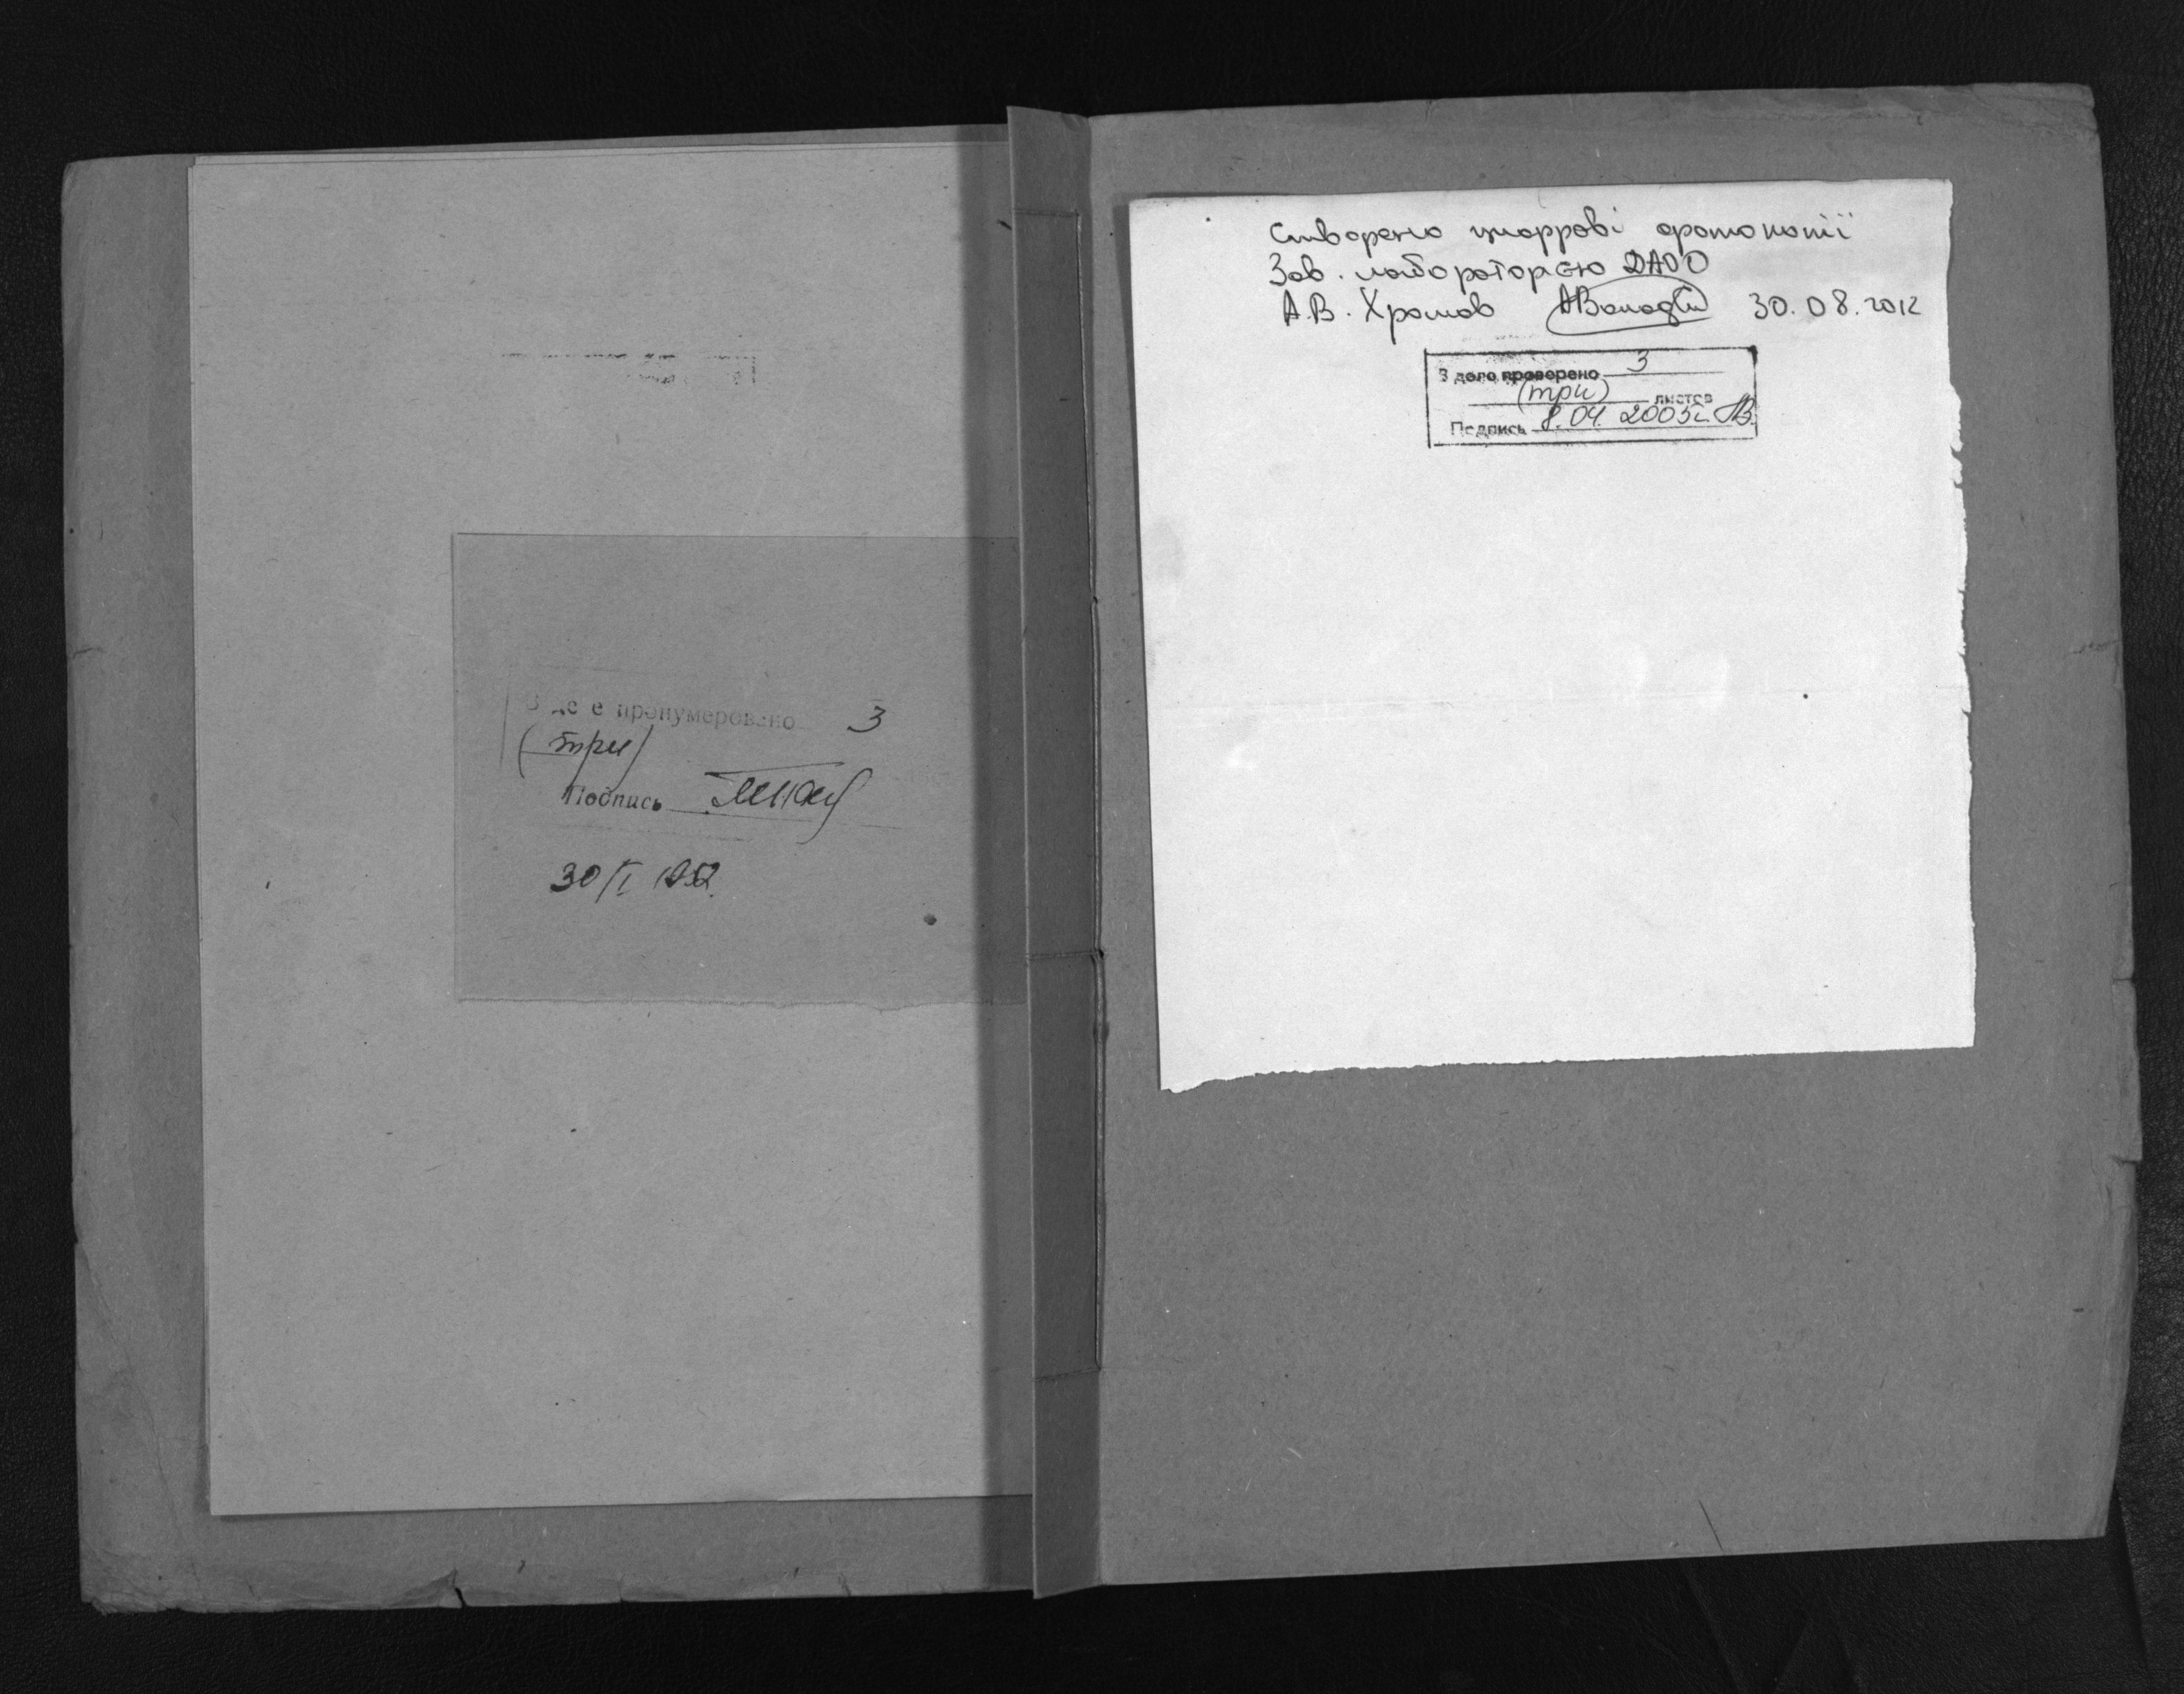 В деле пронумеровано 3
(три)
Подпись
30/I 1952.
Створено цифрові фотокопії
Зав. лабораторією ДАОО
А.В. Хромов 30.08.2012
В деле проверено 3
(три) листов
Подпись 8.04.2003г.